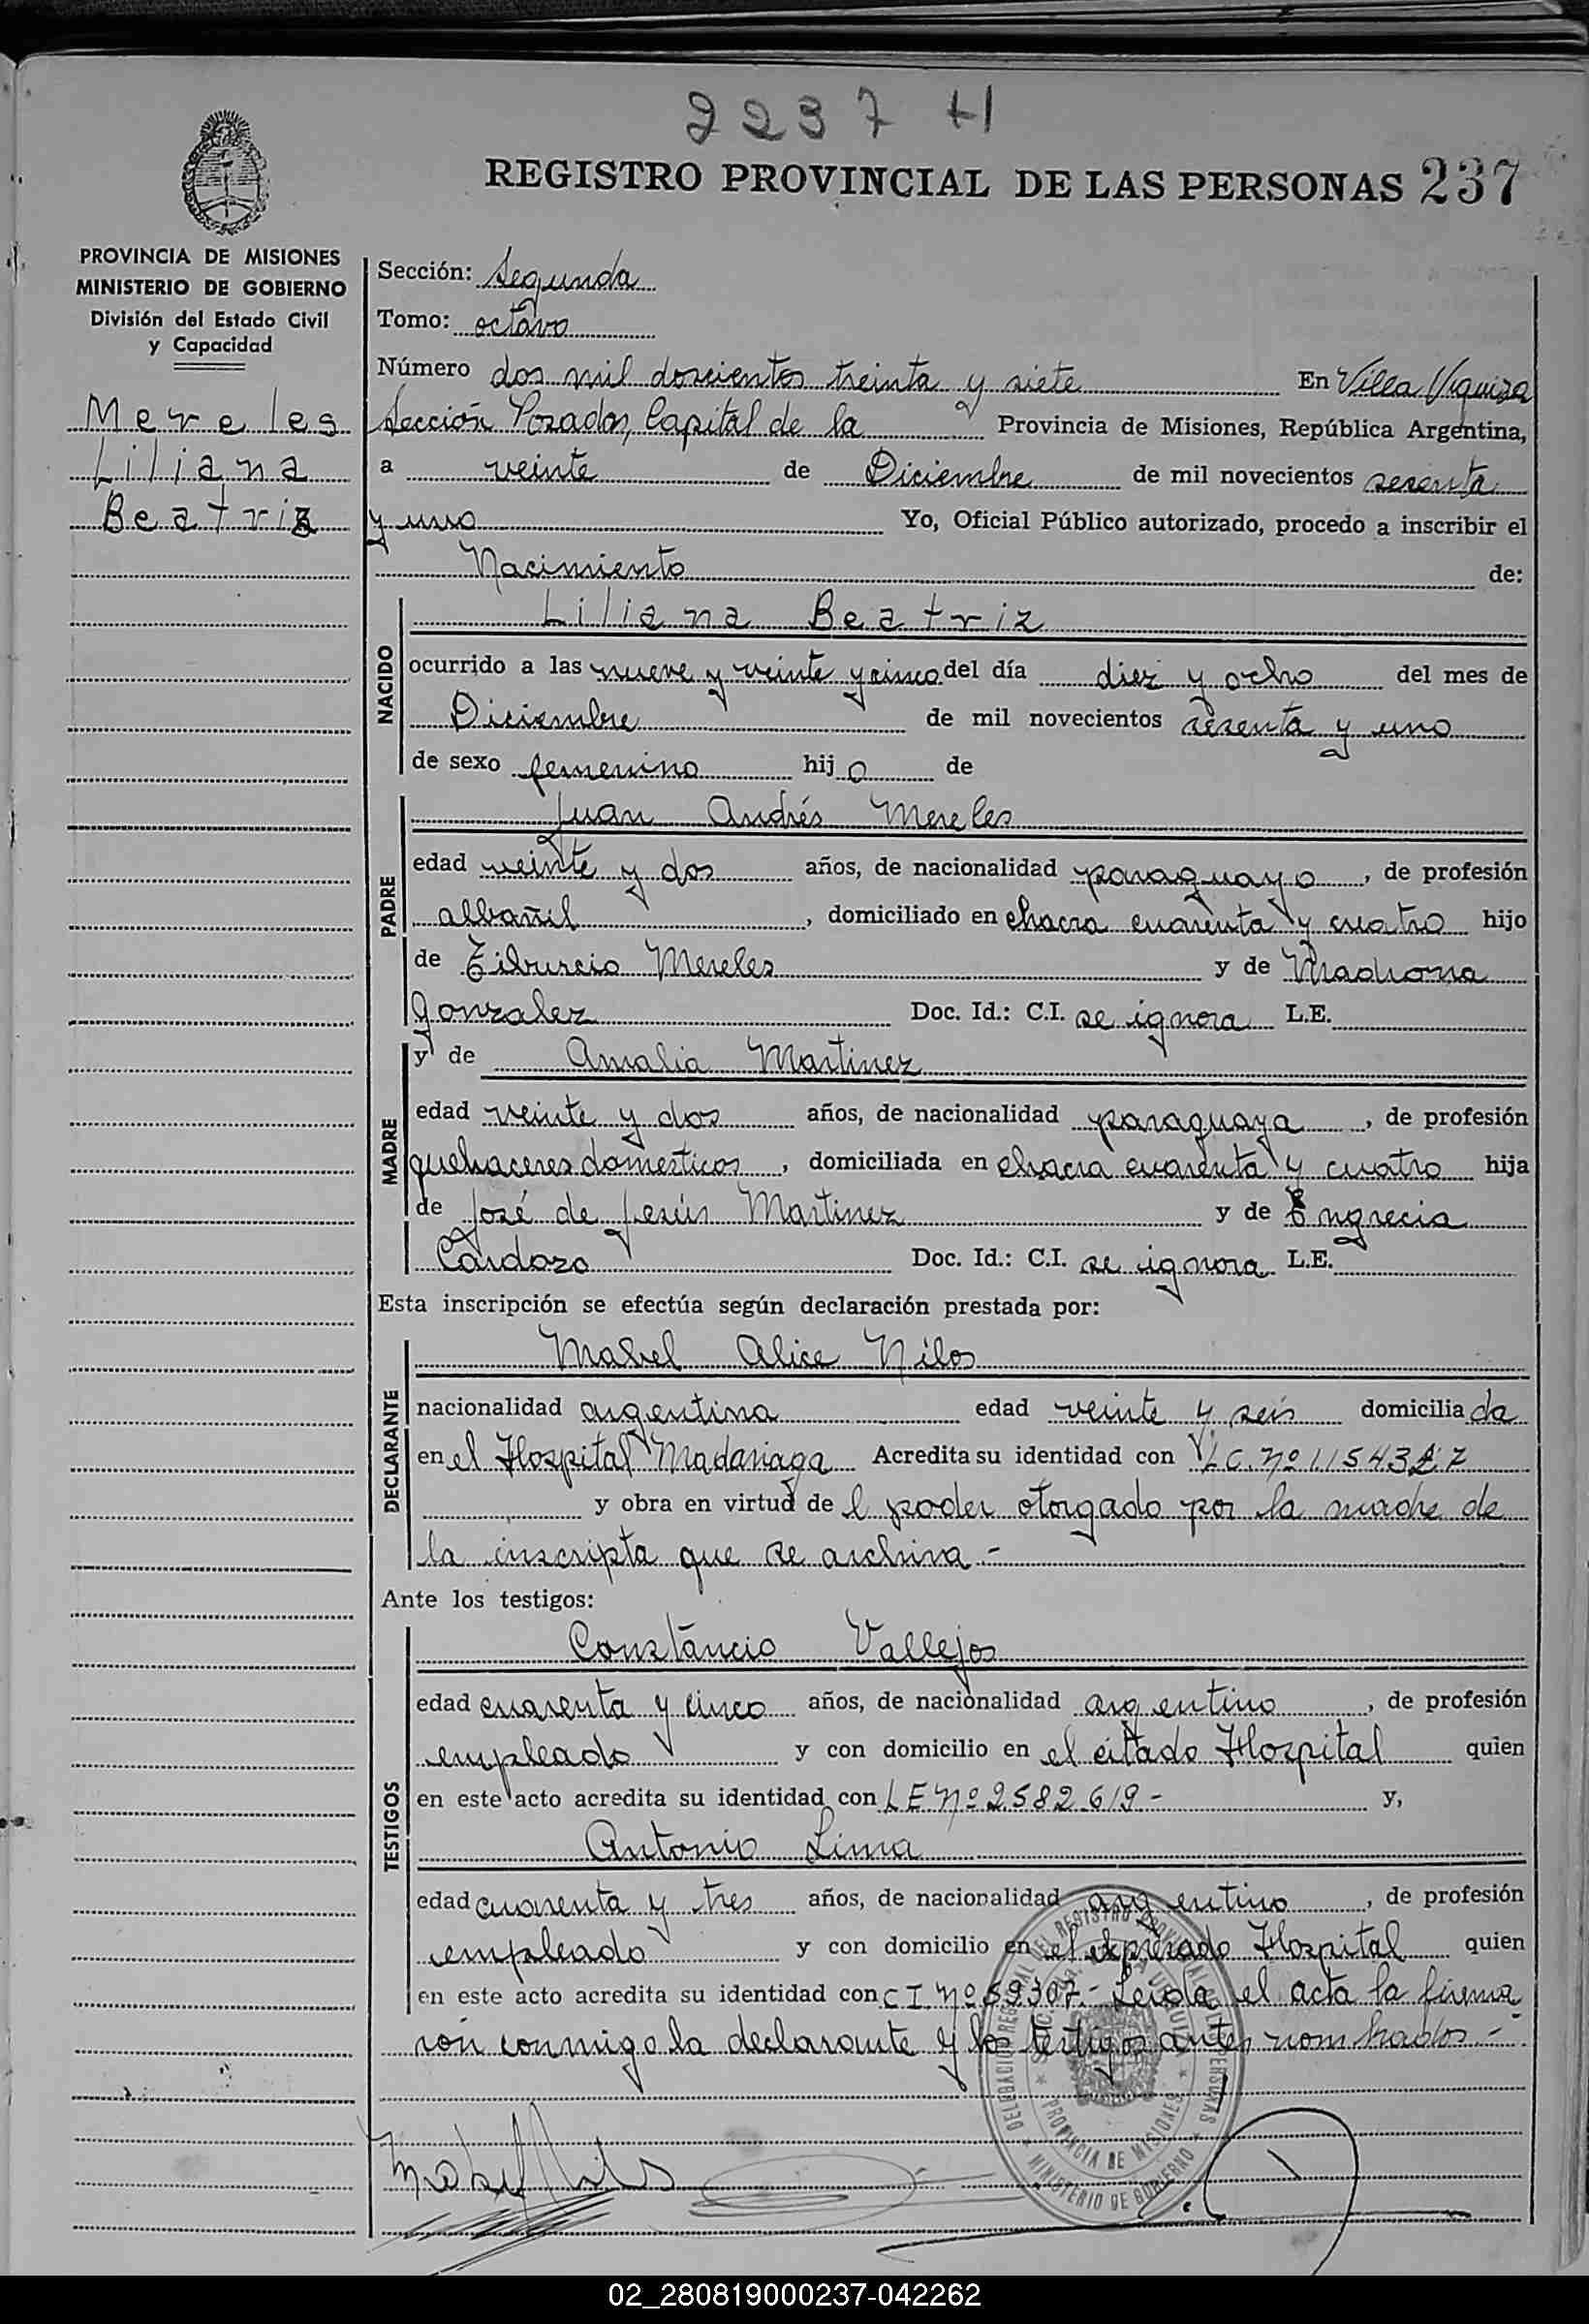 2237 H
REGISTRO PROVINCIAL DE LAS PERSONAS 237
PROVINCIA DE MISIONES
MINISTERIO DE GOBIERNO
División del Estado Civil
y Capacidad
Mereles
Liliana
Beatriz
Sección: Segunda
Tomo: octavo
Número dos mil doscientos treinta y siete En Villa Urquiza
Sección Posadas, Capital de la Provincia de Misiones, República Argentina,
a veinte de Diciembre de mil novecientos sesenta
y uno Yo, Oficial Público autorizado, procedo a inscribir el
Nacimiento de:
NACIDO
Liliana Beatriz
ocurrido a las nueve y veinte y cinco del día diez y ocho del mes de
Diciembre de mil novecientos sesenta y uno
de sexo femenino hijo de
PADRE
Juan Andrés Mereles
edad veinte y dos años, de nacionalidad paraguayo, de profesión
albañil, domiciliado en chacra cuarenta y cuatro hijo
de Tiburcio Mereles y de
Gonzalez Doc. Id.: C.I. se ignora L.E.
MADRE
y de Amalia Martinez
edad veinte y dos años, de nacionalidad paraguaya, de profesión
quehaceres domesticos, domiciliada en chacra cuarenta y cuatro hija
de José de Jesús Martinez y de Engrecia
Cardozo Doc. Id.: C.I. se ignora L.E.
Esta inscripción se efectúa según declaración prestada por:
DECLARANTE
Mabel Alice Nilos
nacionalidad argentina edad veinte y seis domiciliada
en el Hospital Madariaga Acredita su identidad con L C. Nº
y obra en virtud del poder otorgado por la madre de
la inscripta que se archiva.-
Ante los testigos:
TESTIGOS
Constancio Vallejos
edad cuarenta y cinco años, de nacionalidad argentino, de profesión
empleado y con domicilio en el citado Hospital quien
en este acto acredita su identidad con L E Nº 2582619- y,
Antonio Lima
edad cuarenta y tres años, de nacionalidad argentino, de profesión
empleado y con domicilio en el expresado Hospital quien
en este acto acredita su identidad con C I Nº 69307.- Leida el acta la firma
ron conmigo la declarante y los testigos antes nombrados.-
PROVINCIA DE MISIONES
MINISTERIO DE GOBIERNO
02_280819000237-042262